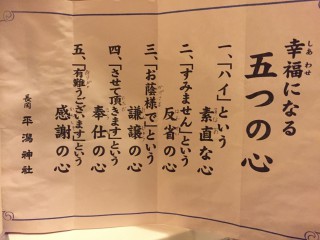 幸福になる
しあわせ
五つの心
一、「ハイ」という
素直な心
二、「すみません」という
反省の心
三、「お陰様で」という
謙譲の心
四、「させて頂きます」という
奉仕の心
五、「有難うございます」という
感謝の心
長岡 平潟神社